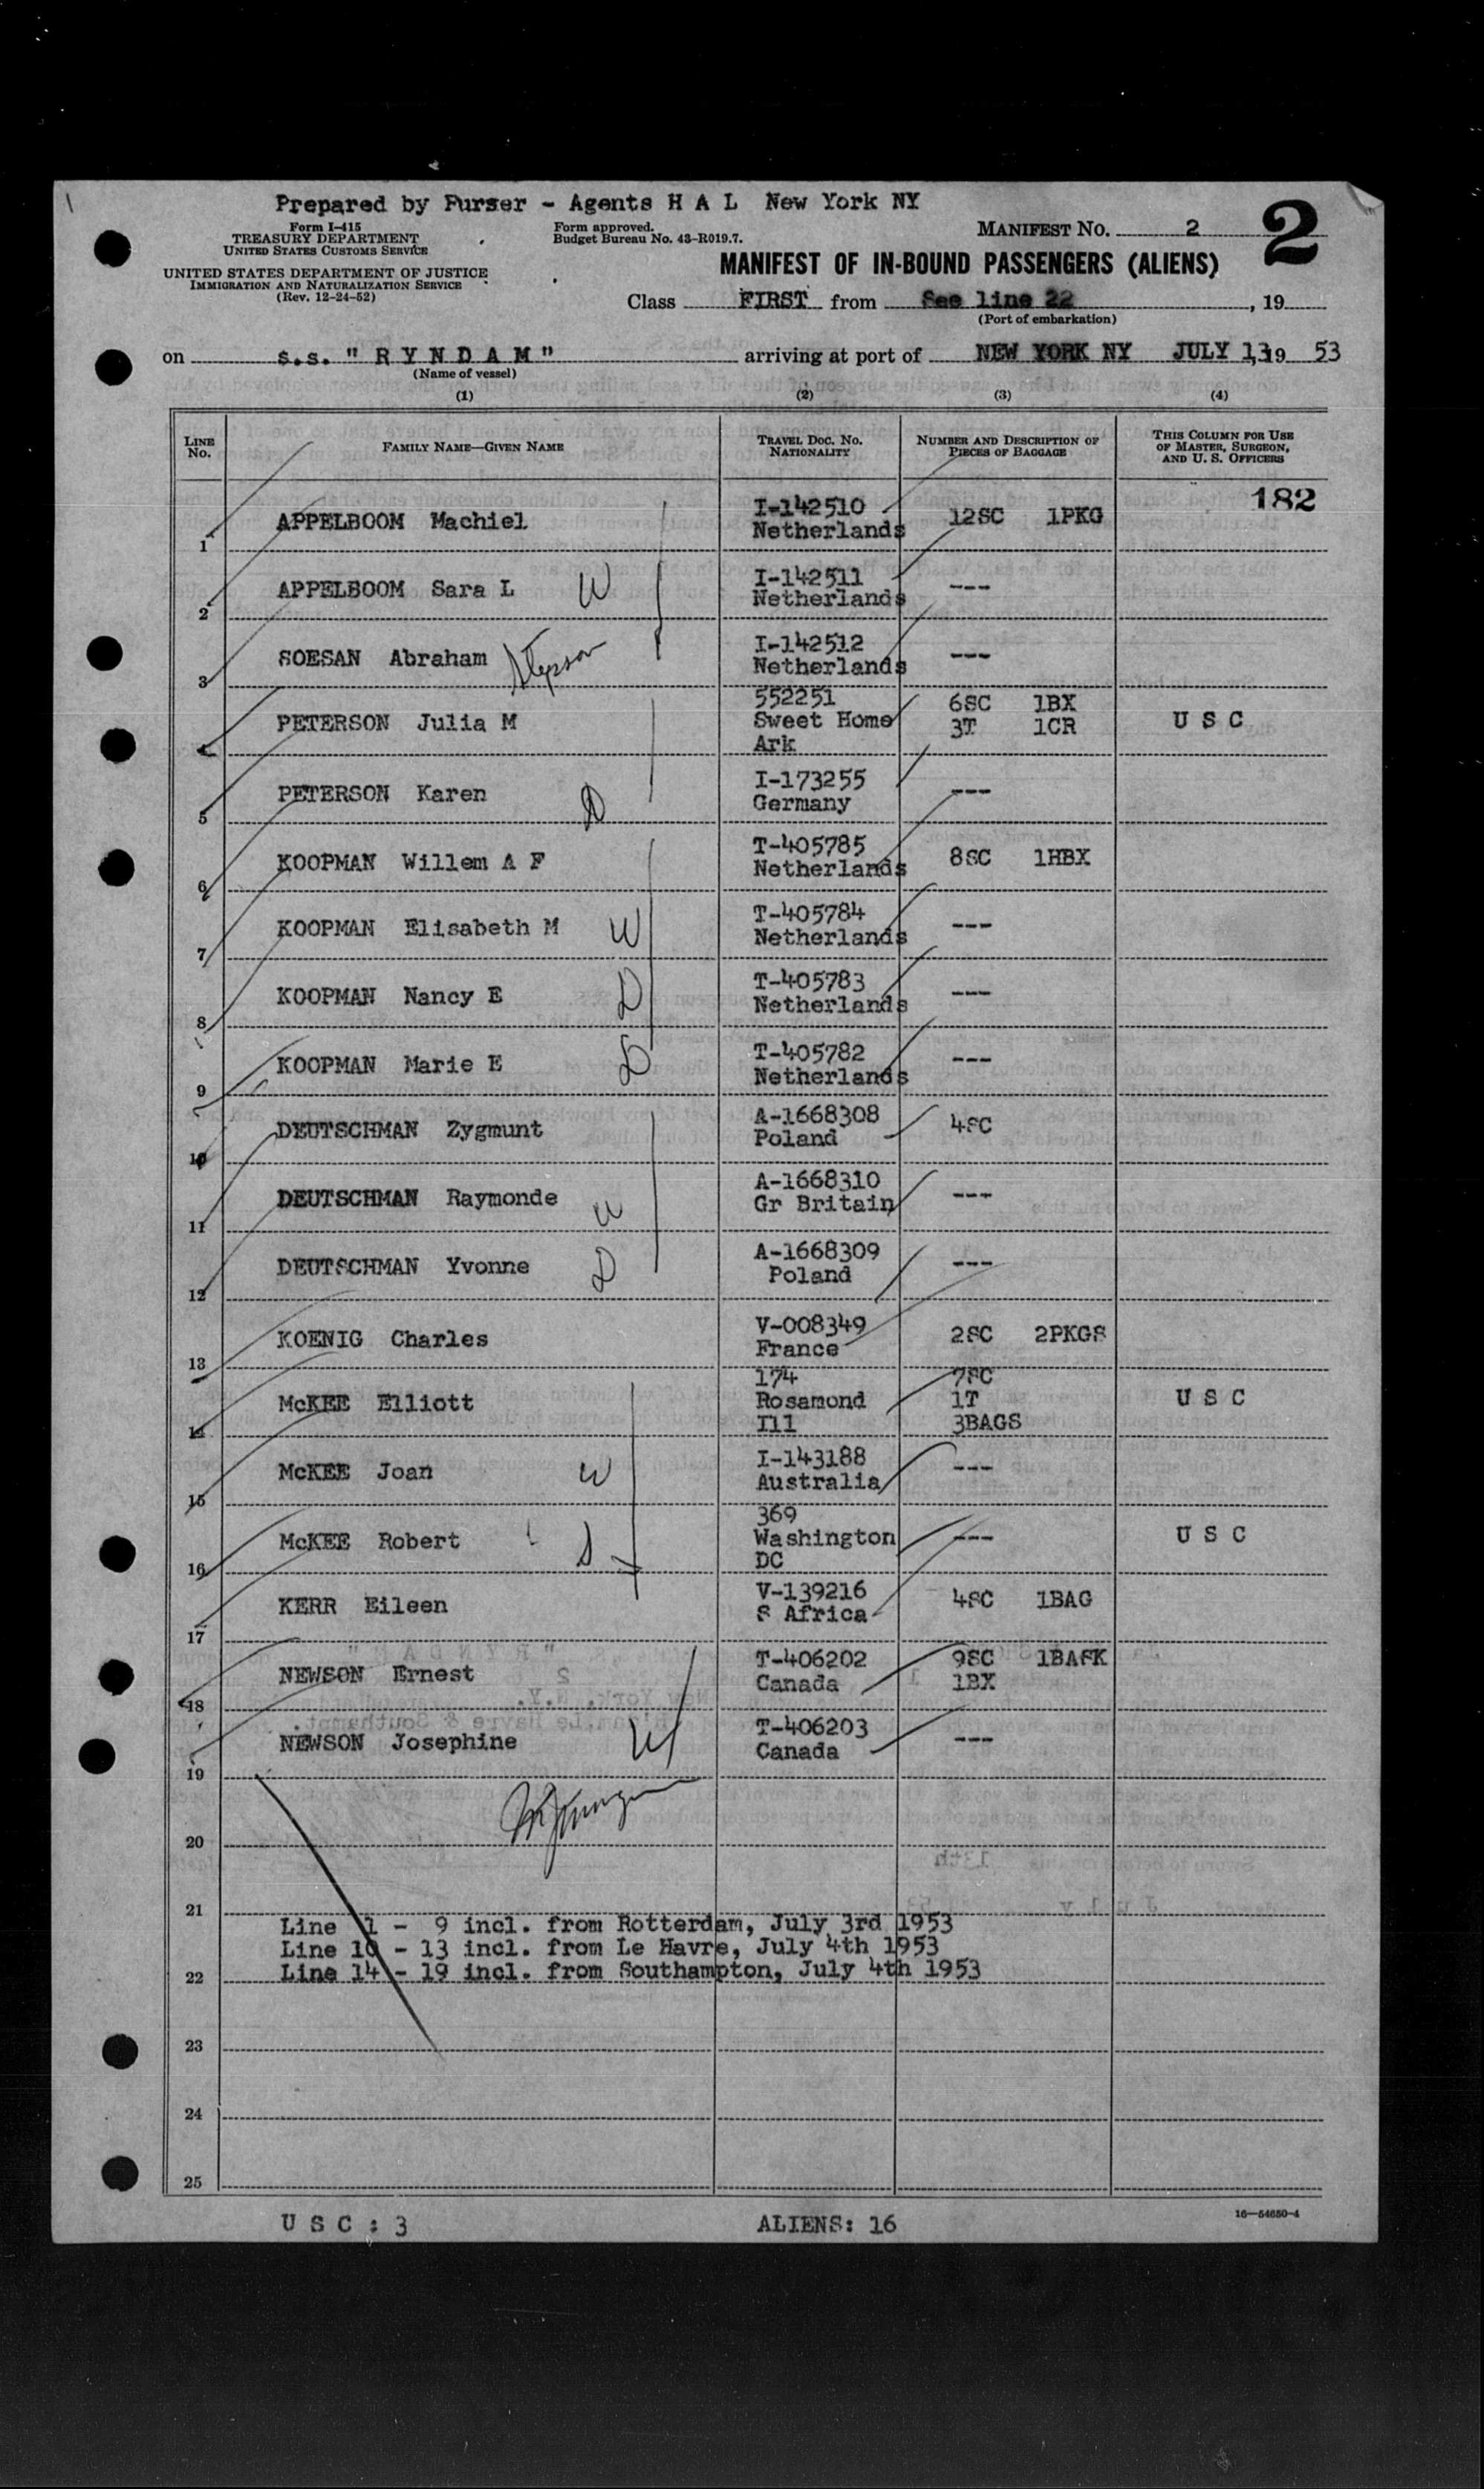 Prepared by Purser - Agents H A L New York NY
Form I-415
TREASURY DEPARTMENT
UNITED STATES CUSTOMS SERVICE
Form approved.
Budget Bureau No. 43-R019.7.
MANIFEST No. 2
2
UNITED STATES DEPARTMENT OF JUSTICE
IMMIGRATION AND NATURALIZATION SERVICE
(Rev. 12-24-52)
MANIFEST OF IN-BOUND PASSENGERS (ALIENS)
Class FIRST from See line 22, 19
(Port of embarkation)
on s.s. "RYNDAM" arriving at port of NEW YORK NY JULY 13, 19 53
(Name of vessel)
(1) (2) (3) (4)
LINE No. FAMILY NAME—GIVEN NAME TRAVEL DOC. NO. NATIONALITY NUMBER AND DESCRIPTION OF PIECES OF BAGGAGE THIS COLUMN FOR USE OF MASTER, SURGEON, AND U. S. OFFICERS
182
1 APPELBOOM Machiel I-142510 Netherlands 12SC 1PKG
2 APPELBOOM Sara L W I-142511 Netherlands ---
3 SOESAN Abraham Stepson I-142512 Netherlands ---
4 PETERSON Julia M 552251 Sweet Home Ark 6SC 1BX 3T 1CR U S C
5 PETERSON Karen D I-173255 Germany ---
6 KOOPMAN Willem A F T-405785 Netherlands 8SC 1HBX
7 KOOPMAN Elisabeth M W T-405784 Netherlands ---
8 KOOPMAN Nancy E D T-405783 Netherlands ---
9 KOOPMAN Marie E D T-405782 Netherlands ---
10 DEUTSCHMAN Zygmunt A-1668308 Poland 4SC
11 DEUTSCHMAN Raymonde W A-1668310 Gr Britain ---
12 DEUTSCHMAN Yvonne D A-1668309 Poland ---
13 KOENIG Charles V-008349 France 2SC 2PKGS
14 McKEE Elliott 174 Rosamond Ill 7SC 1T 3BAGS U S C
15 McKEE Joan W I-143188 Australia ---
16 McKEE Robert S 369 Washington DC --- U S C
17 KERR Eileen V-139216 S Africa 4SC 1BAG
18 NEWSON Ernest T-406202 Canada 9SC 1BASK 1BX
19 NEWSON Josephine W T-406203 Canada ---
20
21
Line 1 - 9 incl. from Rotterdam, July 3rd 1953
Line 10 - 13 incl. from Le Havre, July 4th 1953
22 Line 14 - 19 incl. from Southampton, July 4th 1953
23
24
25
U S C : 3 ALIENS: 16
16—54650-4